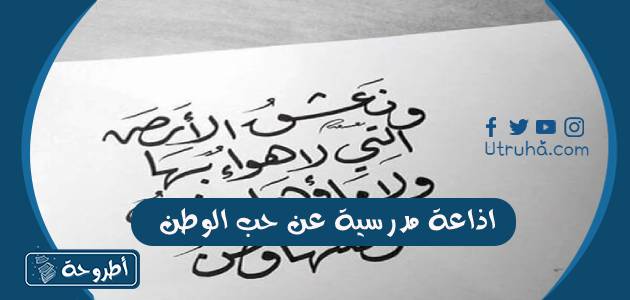 ونَعَشقُ الأَرضَ
التي لا هواء بها
ولا ماؤها
Utruha.com
اذاعة مدرسية عن حب الوطن
أطروحة